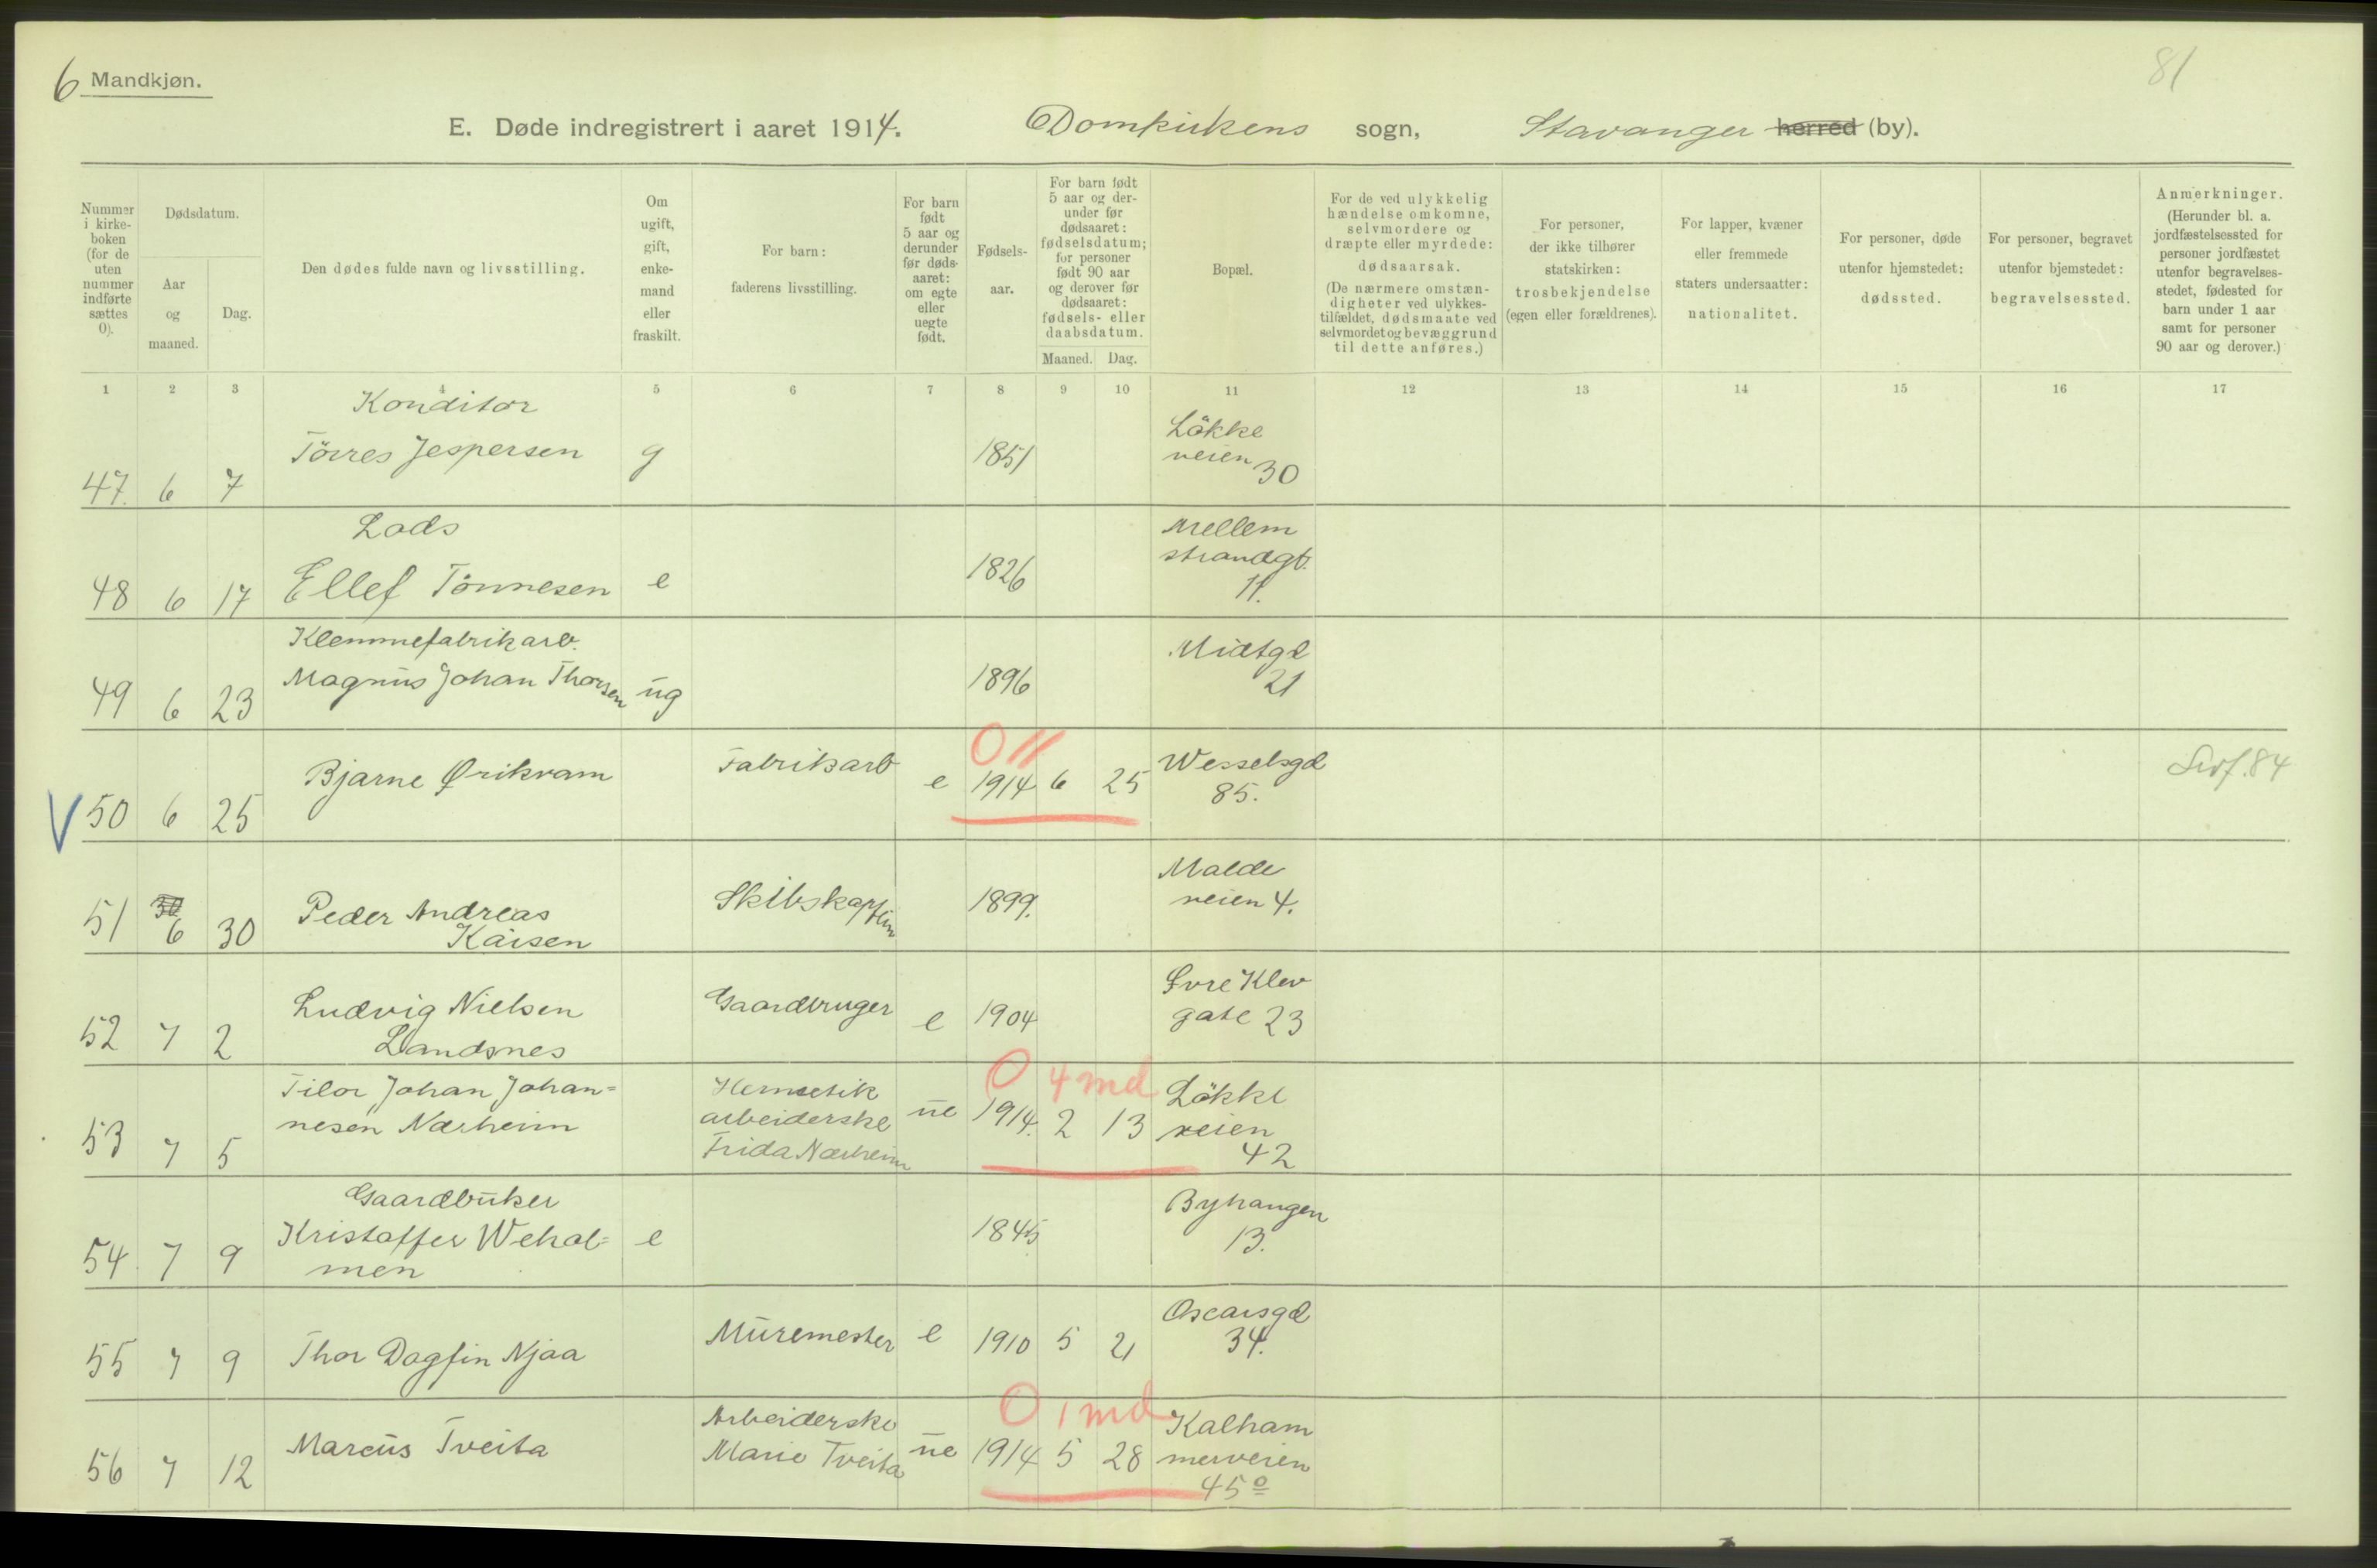 6 Mandkjøn.
81
E. Døde indregistrert i aaret 1914. Domkirkens sogn, Stavanger herred (by).
Nummer i kirkeboken (for de uten nummer indførte sættes 0).
Dødsdatum.
Aar og maaned.
Dag.
Den dødes fulde navn og livsstilling.
Om ugift, gift, enkemand eller fraskilt.
For barn: faderens livsstilling.
For barn født 5 aar og derunder før dødsaaret: om egte eller uegte født.
Fødselsaar.
For barn født 5 aar og derunder før dødsaaret: fødselsdatum; for personer født 90 aar og derover før dødsaaret: fødsels- eller daabsdatum.
Maaned. Dag.
Bopæl.
For de ved ulykkelig hændelse omkomne, selvmordere og dræpte eller myrdede: dødsaarsak. (De nærmere omstændigheter ved ulykkestilfældet, dødsmaate ved selvmordet og bevæggrund til dette anføres.)
For personer, der ikke tilhører statskirken: trosbekjendelse (egen eller forældrenes).
For lapper, kvæner eller fremmede staters undersaatter: nationalitet.
For personer, døde utenfor hjemstedet: dødssted.
For personer, begravet utenfor hjemstedet: begravelsessted.
Anmerkninger. (Herunder bl. a. jordfæstelsessted for personer jordfæstet utenfor begravelsesstedet, fødested for barn under 1 aar samt for personer 90 aar og derover.)
1 2 3 4 5 6 7 8 9 10 11 12 13 14 15 16 17
Konditor
47. 6 7 Törres Jespersen g 1851 Lökke veien 30
Lods
48 6 17 Ellef Tönnesen e 1826 Mellem strandgt. 11.
Klemmefabrikarb.
49 6 23 Magnus Johan Thorsen ug 1896 Midtgd 21
0 11
V 50 6 25 Bjarne Ørikvam Fabrikarb e 1914 6 25 Wesselsgd 85. 84
51 30 6 30 Peder Andreas Kaisen Skibskaptin 1899. Malde veien 4.
52 7 2 Ludvig Nielsen Landsnes Gaardbruger e 1904 Övre Klev gate 23
0 4 md
53 7 5 Tilor Johan Johan=
nesen Nærheim Hermetik arbeiderske Frida Nærheim ue 1914. 2 13 Lökke veien 42
Gaardbruker
54. 7 9 Kristoffer Wehol=
men e 1845 Byhaugen 13.
55 7 9 Thor Dagfin Njaa Muremester e 1910 5 21 Oscarsgd 34.
0 1 md
56 7 12 Marcus Tveita Arbeiderske Marie Tveita ue 1914 5 28 Kalham merveien 45